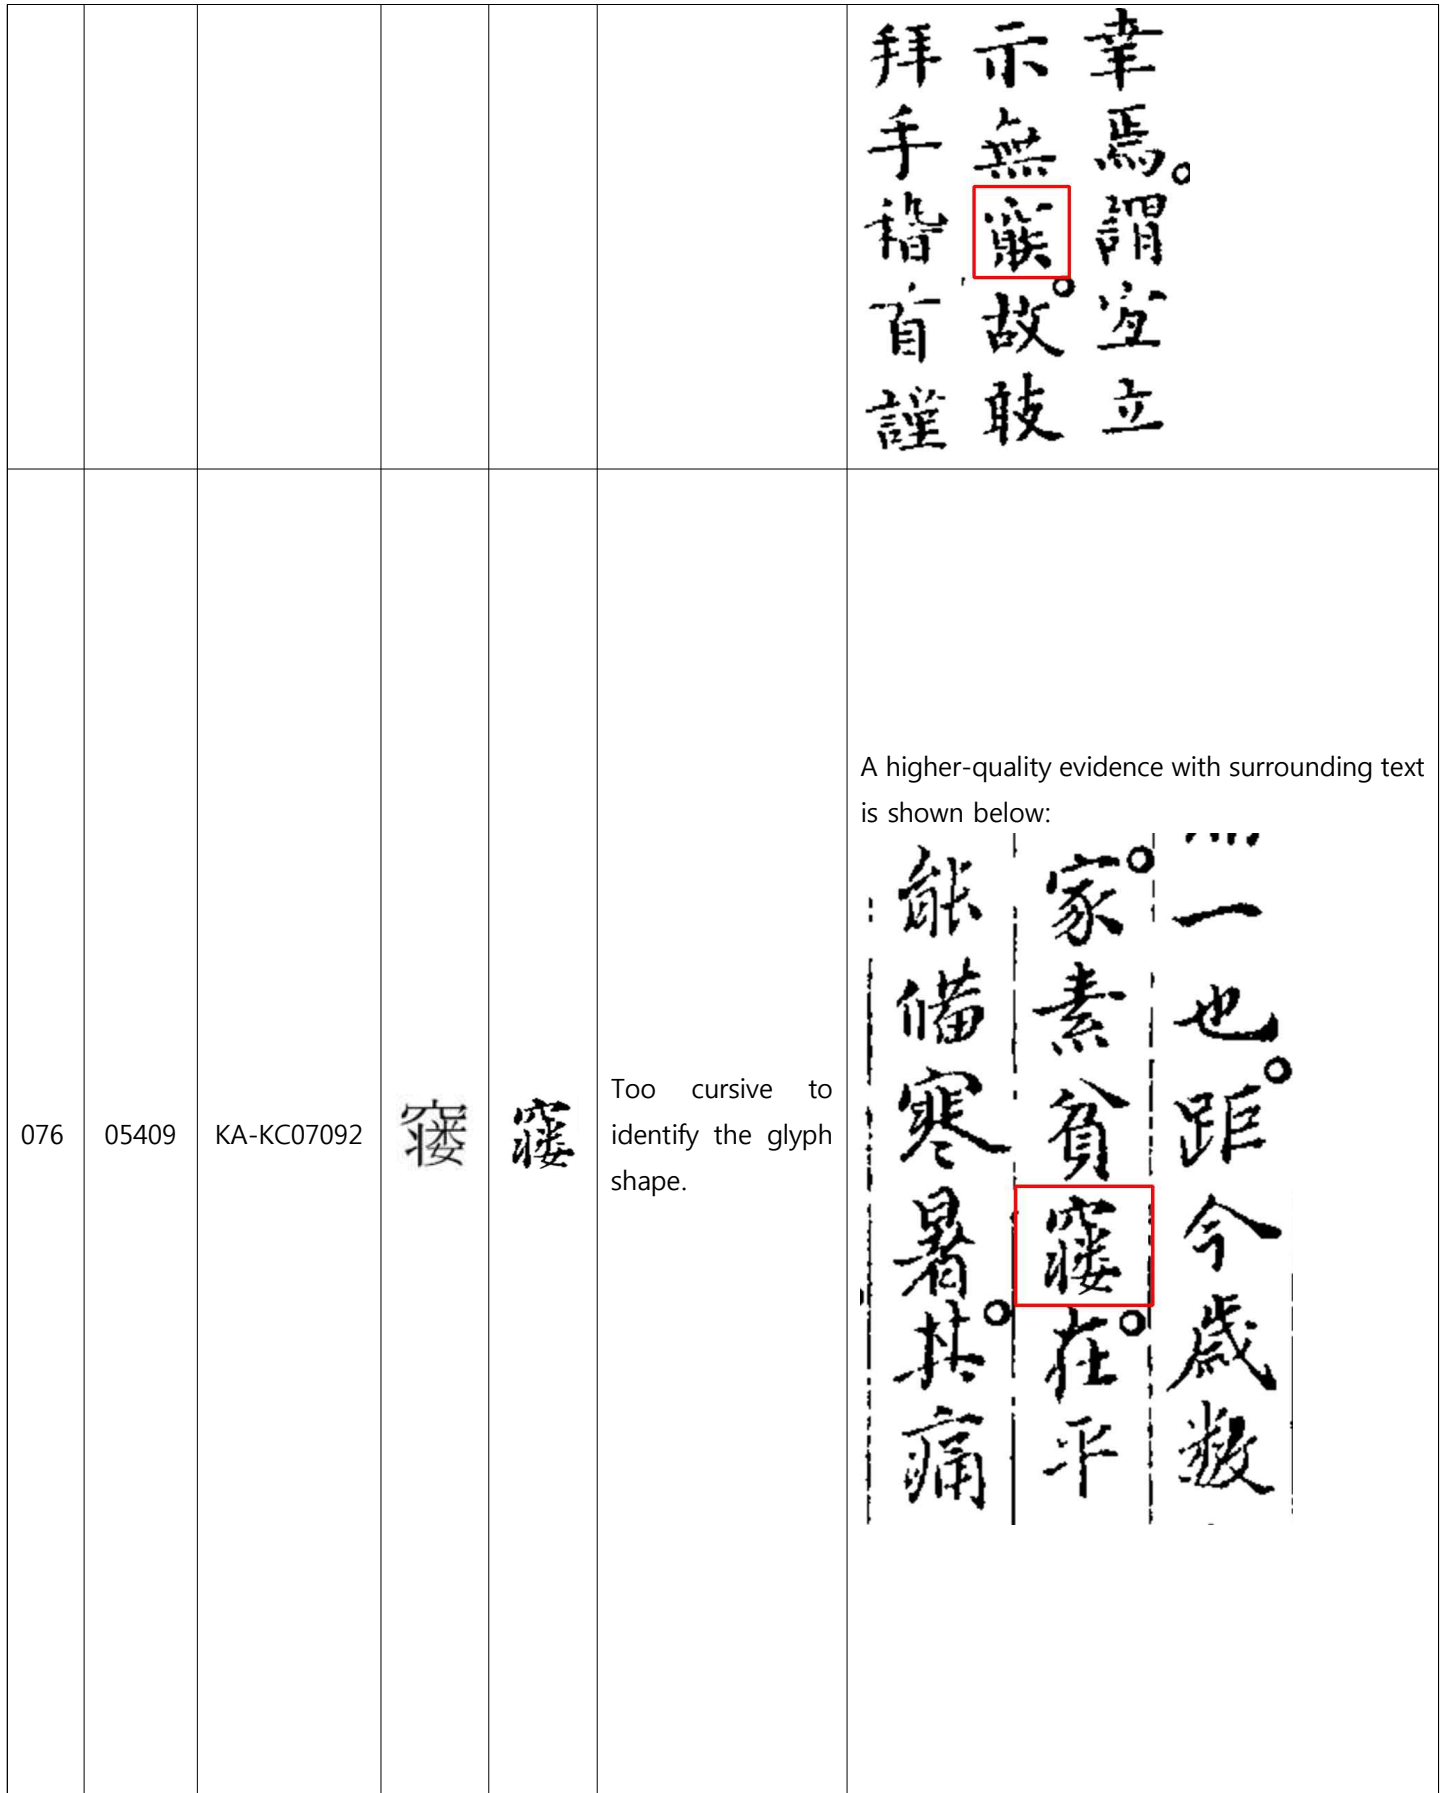 幸焉。謂宜立
示無。故敢
拜手稽首謹
076
05409
KA-KC07092
Too cursive to
identify the glyph
shape.
A higher-quality evidence with surrounding text
is shown below:
一也。距今歲数
家。素貧。在平
能備寒暑。其痛